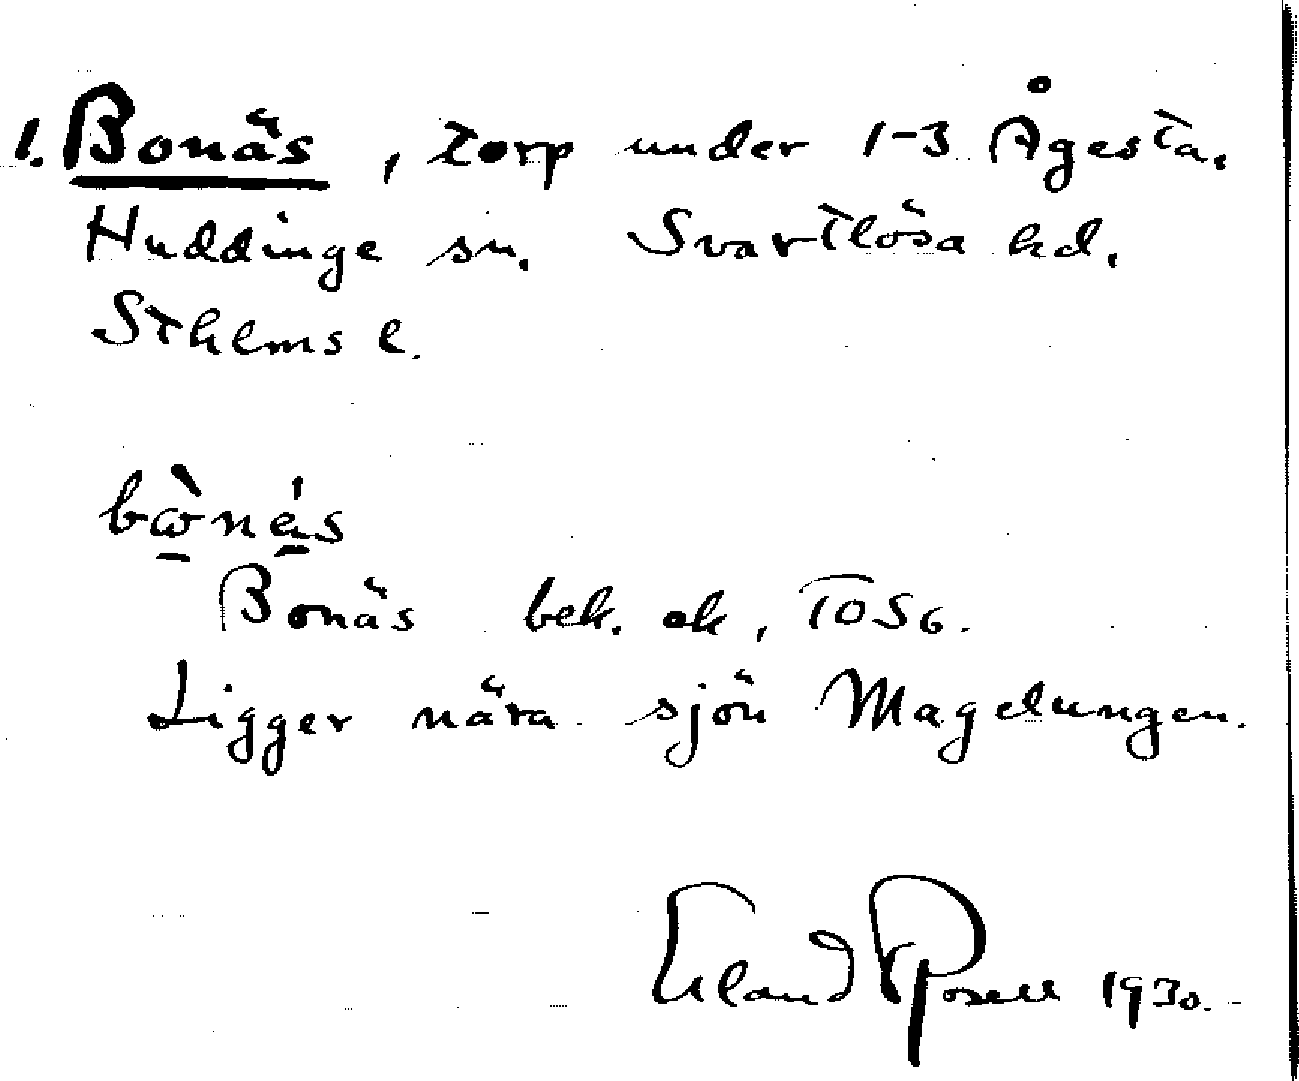 1. Bonäs, torp under 1-3 Ågesta.
Huddinge sn. Svartlösa hd.
Sthlms l.
bὼ̱ná̱s
Bonäs bek. ek, TOSG.
Ligger nära sjön Magelungen.
Erland Rosell 1930.